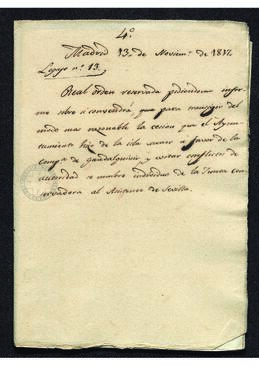 4º
Madrid 13 de Noviem.e de 1817.
Legajo nº 13.
Real orden reservada pidiendose infor-
me sobre si convendrá, que para transigir del
modo mas razonable la cesion que el Ayun-
tamiento hizo de la isla menor á favor de la
Comp.a de Guadalquivir, y evitar conflictos de
autoridad se nombre individuo de la Junta con-
servadora al Asistente de Sevilla.